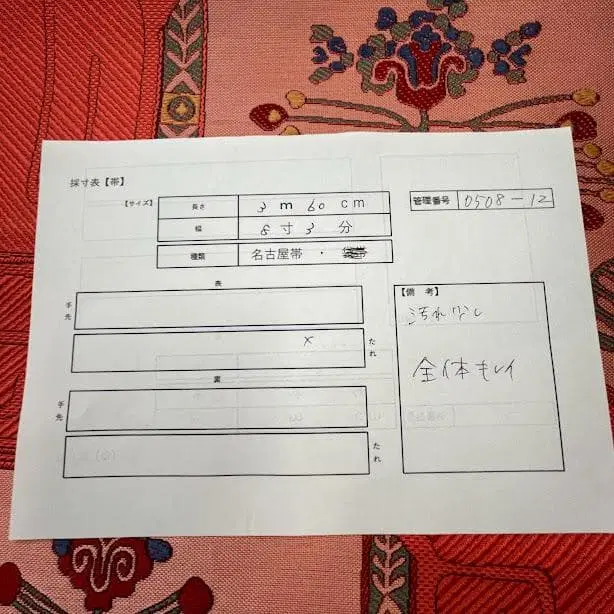 採寸表【帯】
【サイズ】 長さ 3 m 60 cm
幅 8 寸 3 分
種類 名古屋帯 ・
管理番号 0508-12
表
手先
×
たれ
裏
手先
たれ
【備 考】
汚れなし
全体キレイ